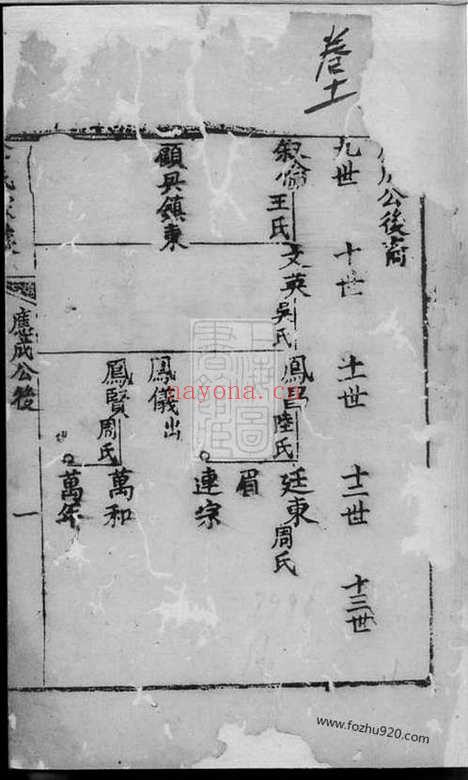 卷十一
公後裔
九世 十世 十一世 十二世 十三世
叙倫 王氏 文英 吳氏 鳳官 陸氏 廷東 周氏
眉
連宗
顧具鎮東
鳳儀出
鳳賢 周氏 萬和
萬年
應成公後 一
nayona.cn
www.fozhu920.com